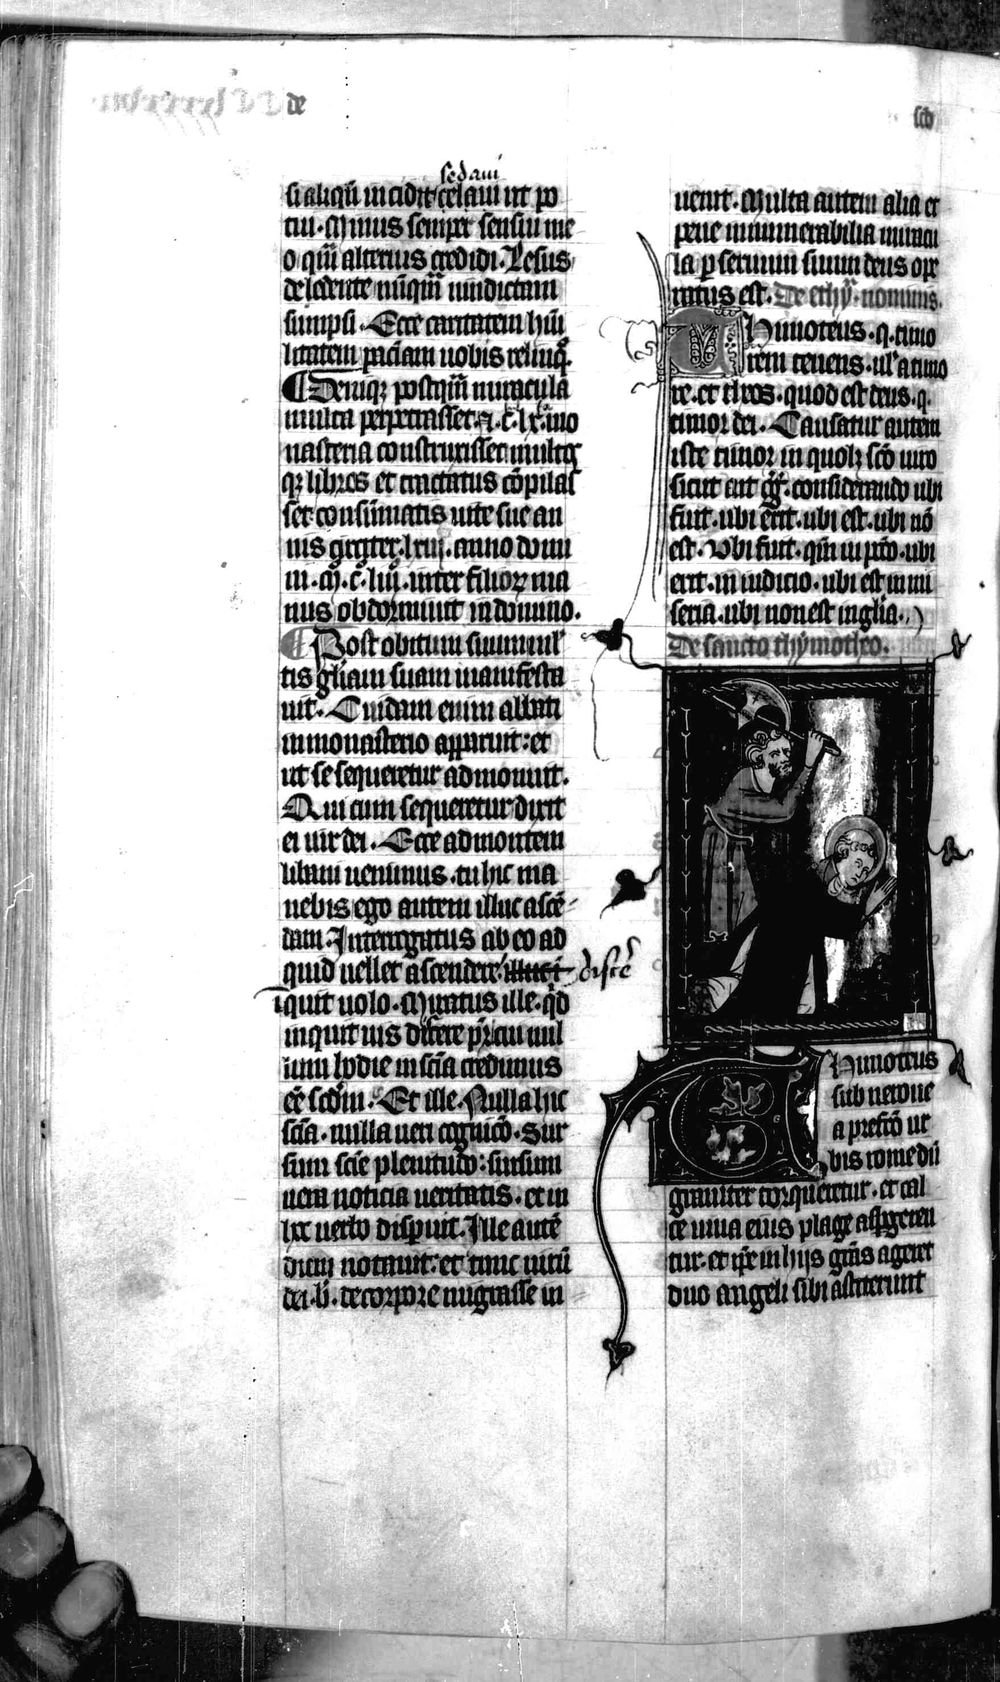 de
sco
sedaui
si aliqū incidit celaui ut po
tui. Minus semper sensui me
o qm̄ alterius credidi. Lesus
de ledente nūqm̄ uindictam
sumpsi. Ecce caritatem hūi
litatem paciam uobis relinqo.
¶ Deniqz postqm̄ miracula
multa perpetrasset. a. c. lx. mo
nasteria construxisset multos
qz libros et tractatus cōpilas
set consūmatis uite sue an
nis circiter. lxiij. anno domi
ni. M. c. liij. inter filioꝝ ma
nus obdormiuit in domino.
¶ Post obitum suum mul
tis gl̄iam suam manifesta
uit. Cuidam enim abbati
in monasterio apparuit: et
ut se sequeretur admonuit.
Qui cum sequeretur dixit
ei uir dei. Ecce ad montem
libani uenimus. tu hic ma
nebis ego autem illuc ascē-
dam. Interrogatus ab eo ad
quid uellet ascendere. illuc discē
inquit uolo. Miratus ille. qd̄
inquit uis discere pr̄ cui nul
lum hodie in scīa credimus
eē scd̄m. Et ille. Nulla hic
scīa. nulla ueri cognicō. Sur
sum scīe plenitudo: sursum
uera noticia ueritatis. et in
hoc uerbo disparuit. Ille autē
diem notauit: et tunc uirū
dei. b̄. de corpore migrasse in
uenit. Multa autem alia et
pene innumerabilia miracu
la p seruum suum deus ope
ratus est. De ethy. nominis.
Thimoteus. q. timo
rem tenens. ul̄ a timo
re. et theos. quod est deus. q.
timor dei. Causatur autem
iste timor in quolz scō uiro
sicut ait gg̃. considerando ubi
fuit. ubi erit. ubi est. ubi nō
est. Vbi fuit. qm̄ in pctō. ubi
erit. in iudicio. ubi est in mi
seria. ubi non est in gl̄ia.
De sancto thymotheo.
Thimoteus
sub nerone
a prefctō ur
bis rome dū
grauiter torqueretur. et cal
ce uiua eius plage aspgeren
tur. et ipe in hijs grās ageret
duo angeli sibi astiterunt